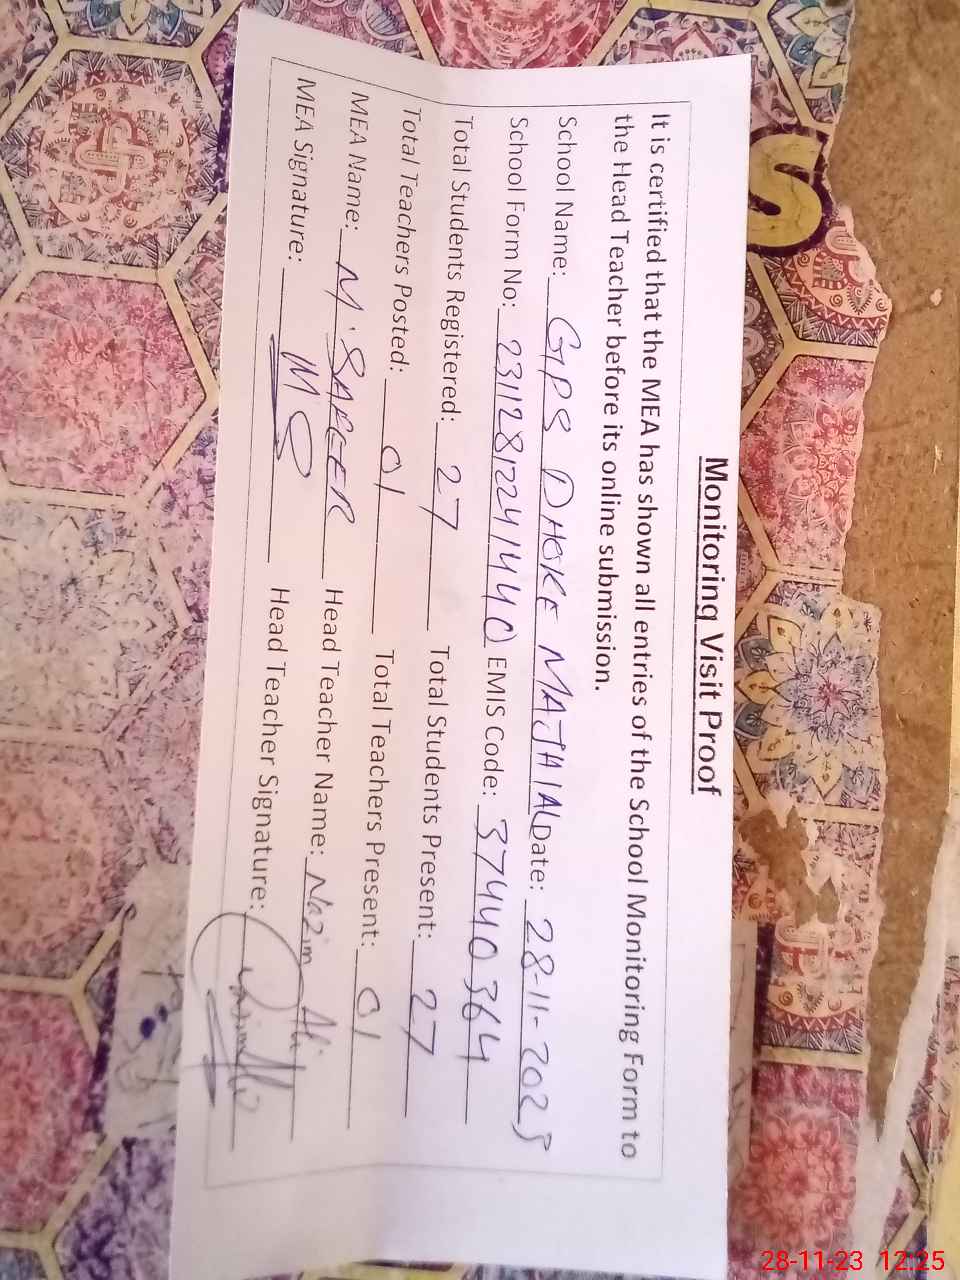 Monitoring Visit Proof
It is certified that the MEA has shown all entries of the School Monitoring Form to
the Head Teacher before its online submission.
School Name: GPS DHOKE MAJHIAL Date: 28-11-2023
School Form No: 23112812241440 EMIS Code: 37440364
Total Students Registered: 27 Total Students Present: 27
Total Teachers Posted: 01 Total Teachers Present: 01
MEA Name: M. SAFEER Head Teacher Name: Nazim Ali
MEA Signature: MS Head Teacher Signature:
S
28-11-23 12:25